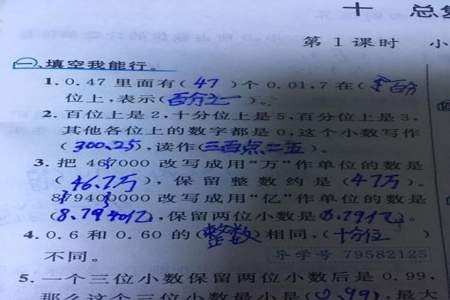 十 总复
第1课时 小
一、填空我能行。
1. 0.47里面有(47)个0.01,7在(百分
位上,表示(百分之一)。
2. 百位上是2,十分位上是5,百分位上是3,
其他各位上的数字都是0,这个小数写作
(300.25),读作(三百点二五)。
3. 把467000改写成用“万”作单位的数是
(46.7万),保留整数约是(47万)。
879400000改写成用“亿”作单位的数是
(8.794亿),保留两位小数是(8.79亿)。
4. 0.6和0.60的(整数)相同,(十分位)
不同。 导学号 79582125
5. 一个三位小数保留两位小数后是0.99,
那么这个三位小数最小是(0.99),最大